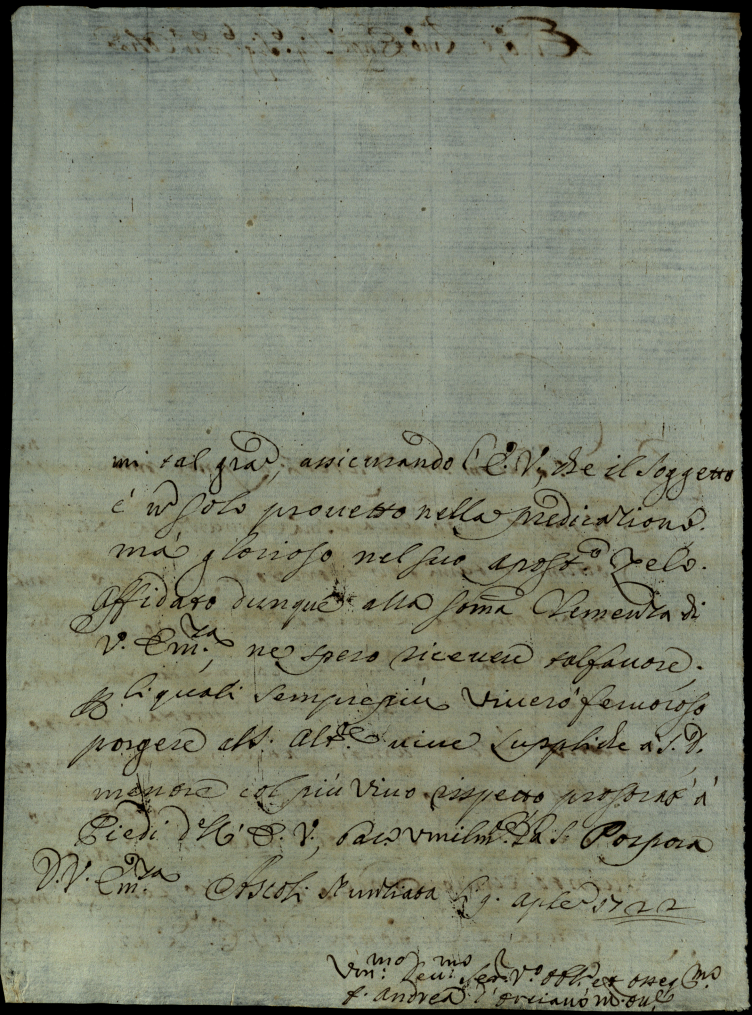 mi tal gra.ᵃ, assicurando l'E. V., che il Soggetto
è n̄ solo provetto nella predicatione.
mà glorioso nel suo apost.ᶜᵒ zelo.
Affidato dunque alla som̃a Clemenza di
V. Em.ᶻᵃ, ne spero ricevere tal favore.
li quali sempre più viverò fervoroso
porgere all' Alt.ᵐᵒ vive suppliche a S. D.
mentre col più vivo rispetto prostrato à
Piedi dell' E. V., bacio umilm.ᵗᵉ la S. Porpora
D. V. Em.ᶻᵃ Ascoli Nuntiata li 9. aple 1722
Um.ᵐᵒ Dev.ᵐᵒ Ser.ʳ V.ᵒ obl. et osseq.ᵐᵒ
f. Andrea d'Orciano